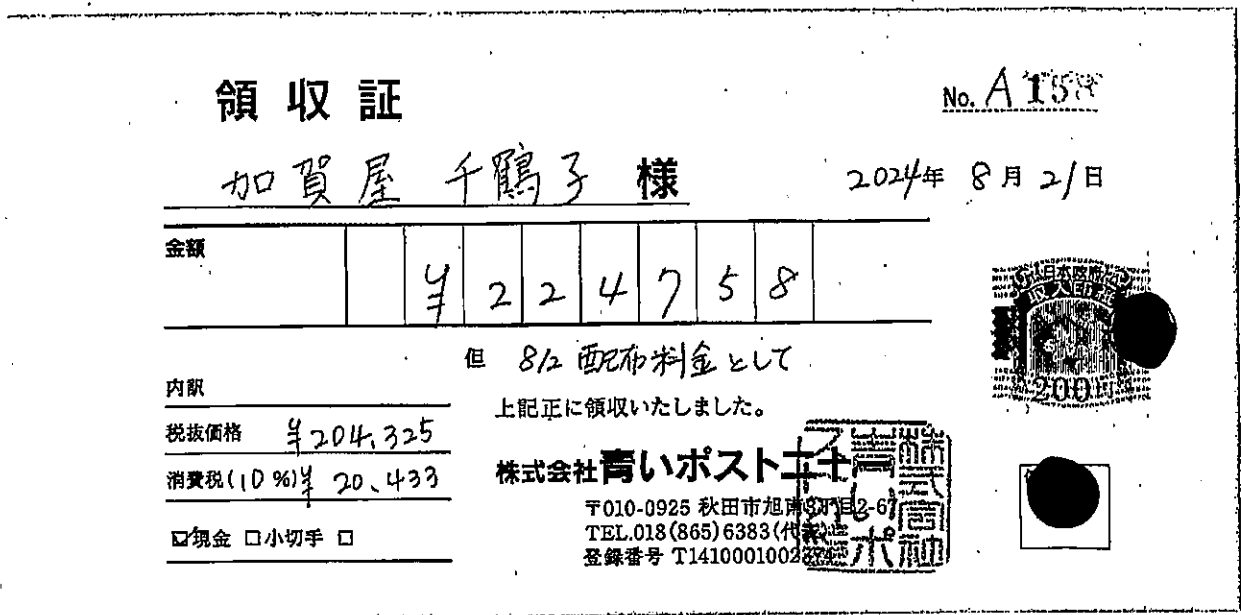 領収証
No. A 15
加賀屋 千鶴子 様
2024年 8月 21日
金額 ¥224758
但 8/2 配布料金として
上記正に領収いたしました。
内訳
税抜価格 ¥204,325
消費税(10%)¥ 20,433
☑現金 □小切手 □
株式会社青いポスト
〒010-0925 秋田市旭南3丁目2-67
TEL.018(865)6383(代表)
登録番号 T1410001002
日本政府
収入印紙
200円